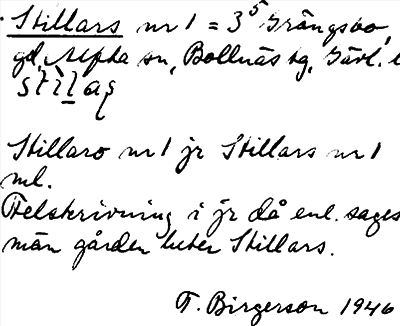 Stillars nr 1 = 3⁵ Grängsbo,
gd, Alfta sn, Bollnäs tg, Gävl. l
stilaṣ
Stillaro nr 1 jr Stillars nr 1
ml.
Felskrivning i jr då enl. sages
män gården heter Stillars.
F. Birgerson 1946